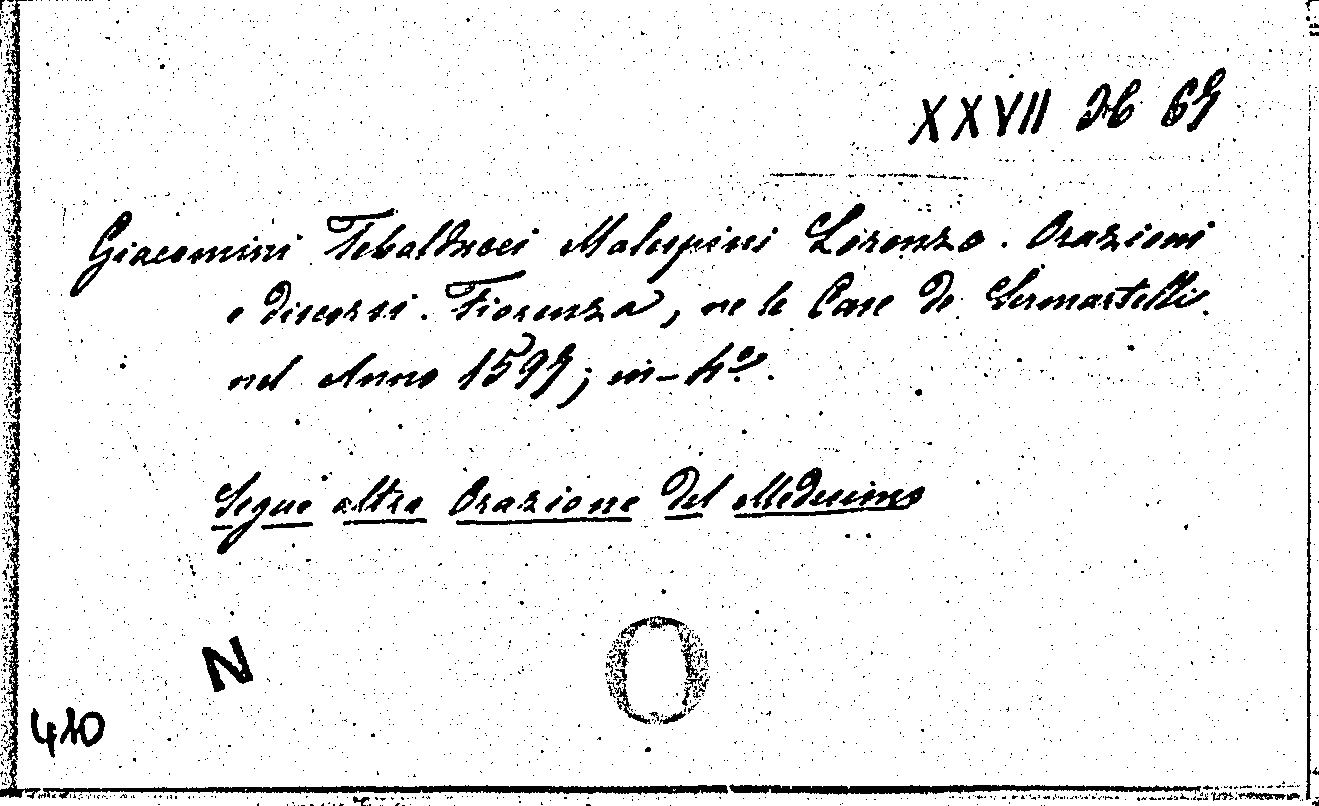 XXVII 67
Giacomini Tebalducci Malespini Lorenzo. Orazioni
e discorsi. Fiorenza, ne le Case de Sermartelli
nel Anno 1597; in-4º.
Segue altra Orazione del Medesimo
N
O
410